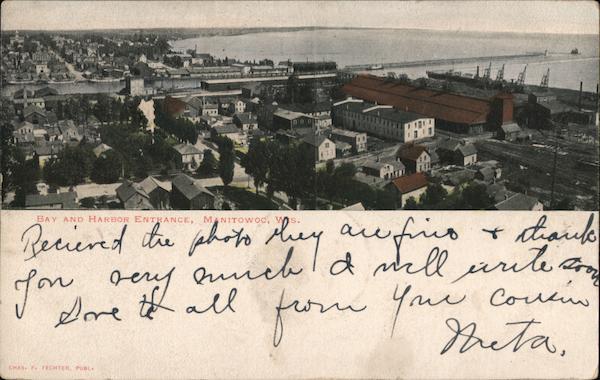 Bay and Harbor Entrance, Manitowoc, Wis.
Recieved the photo they are fine & thank
you very much & I will write soon
Love to all from your cousin
Meta.
Chas. F. Fechter, Publ.